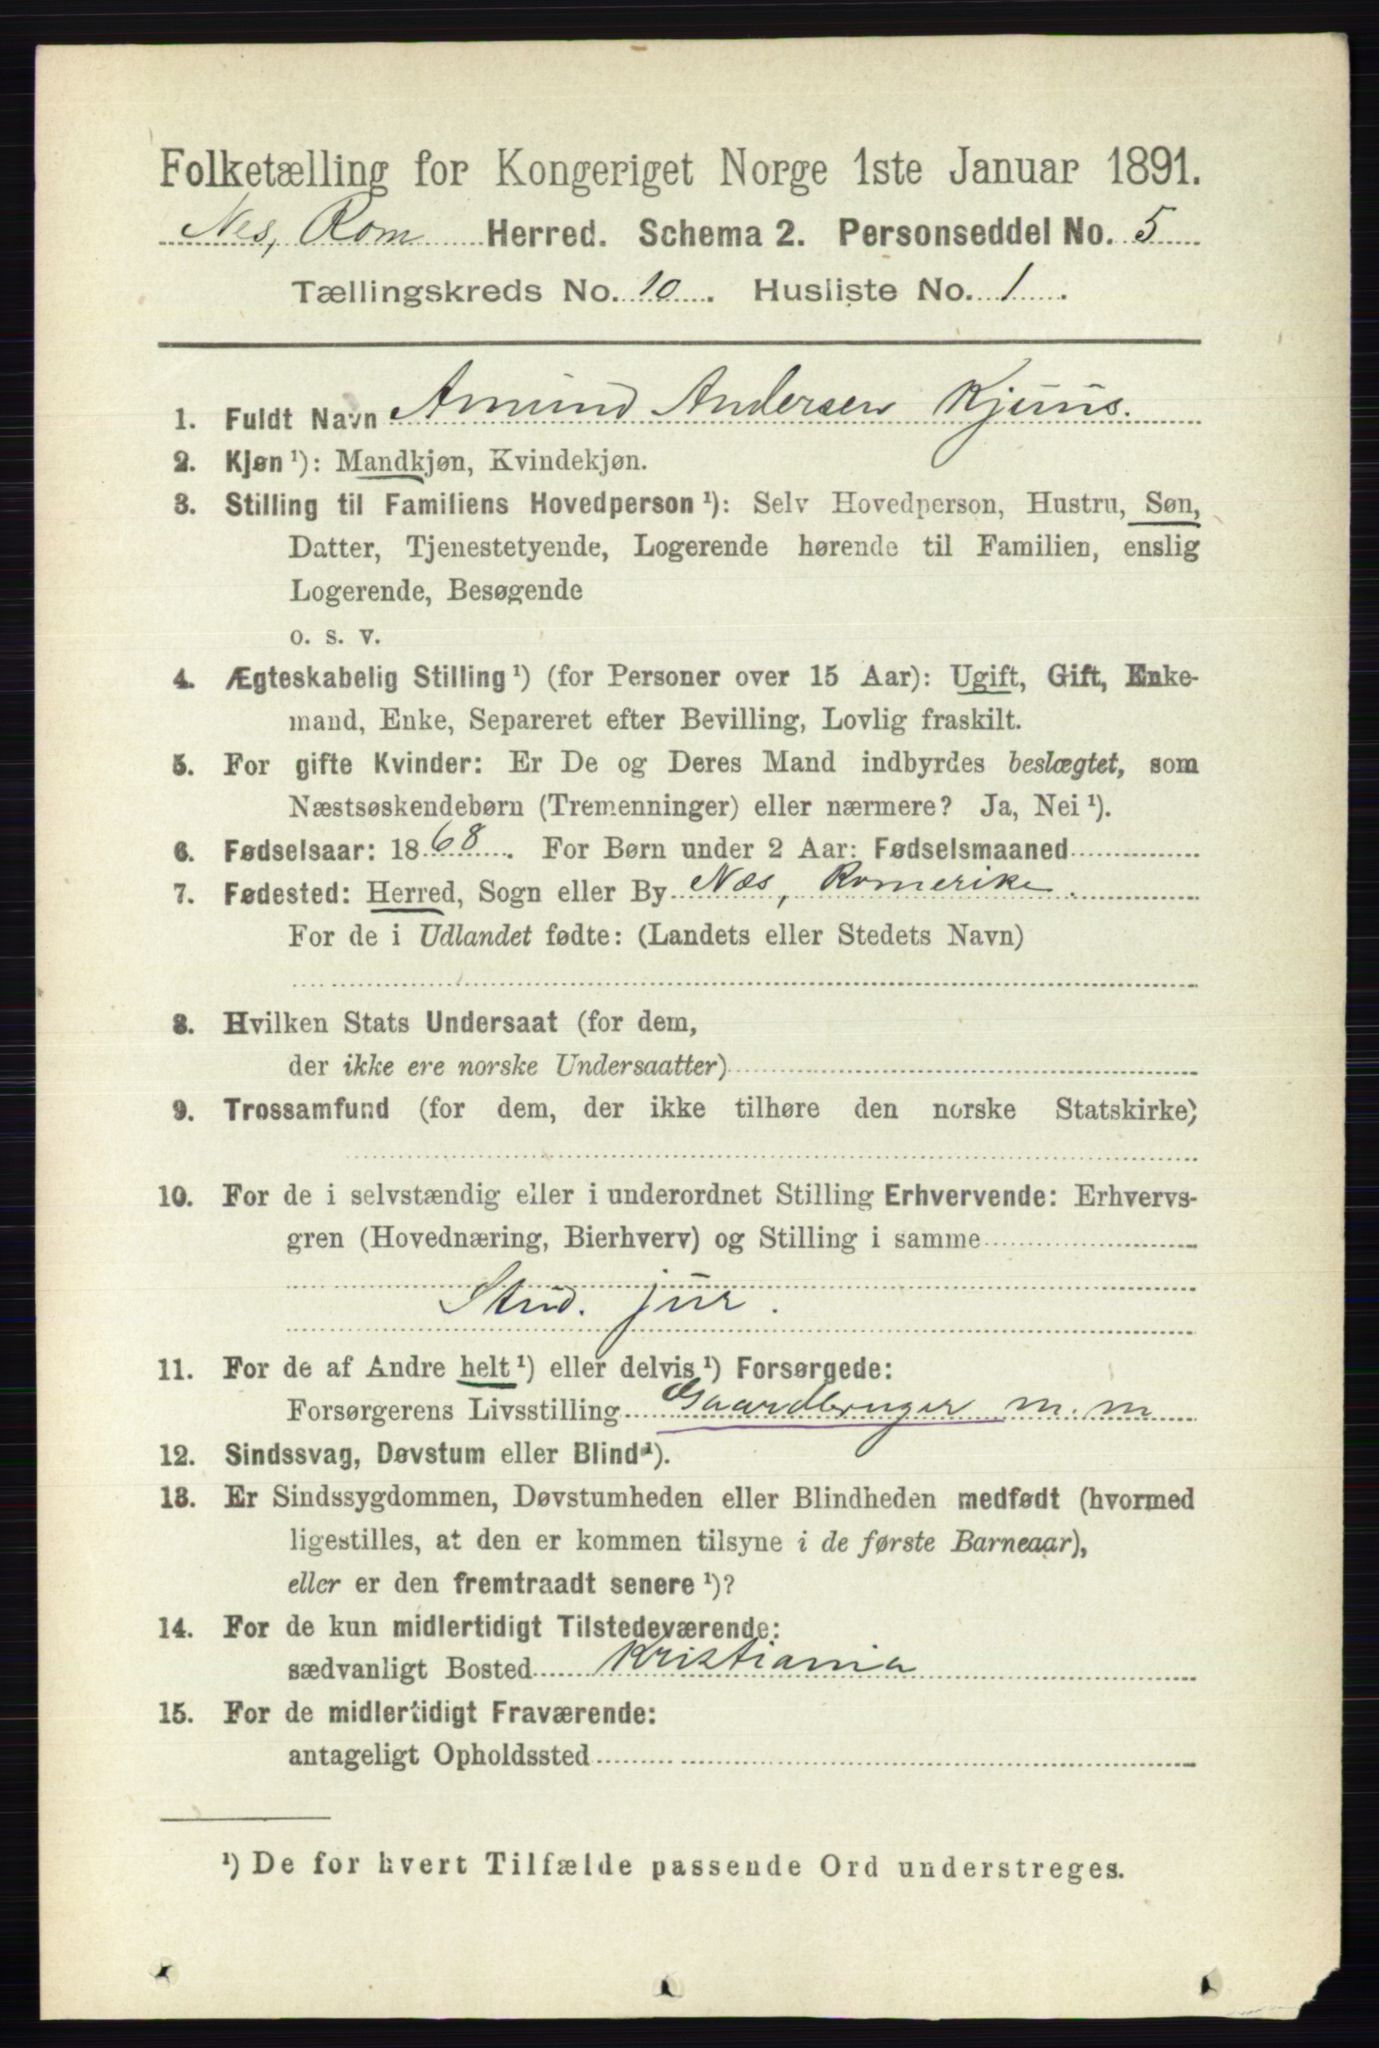 Folketælling for Kongeriget Norge 1ste Januar 1891.
Nes, Rom Herred. Schema 2. Personseddel No. 5
Tællingskreds No. 10. Husliste No. 1.
1. Fuldt Navn Amund Andersen Kjuus.
2. Kjøn ¹): Mandkjøn, Kvindekjøn.
3. Stilling til Familiens Hovedperson ¹): Selv Hovedperson, Hustru, Søn,
Datter, Tjenestetyende, Logerende hørende til Familien, enslig
Logerende, Besøgende
o. s. v.
4. Ægteskabelig Stilling ¹) (for Personer over 15 Aar): Ugift, Gift, Enke-
mand, Enke, Separeret efter Bevilling, Lovlig fraskilt.
5. For gifte Kvinder: Er De og Deres Mand indbyrdes beslægtet, som
Næstsøskendebørn (Tremenninger) eller nærmere? Ja, Nei ¹).
6. Fødselsaar: 1868. For Børn under 2 Aar: Fødselsmaaned
7. Fødested: Herred, Sogn eller By Næs, Romerike.
For de i Udlandet fødte: (Landets eller Stedets Navn)
8. Hvilken Stats Undersaat (for dem,
der ikke ere norske Undersaatter)
9. Trossamfund (for dem, der ikke tilhøre den norske Statskirke)
10. For de i selvstændig eller i underordnet Stilling Erhvervende: Erhvervs-
gren (Hovednæring, Bierhverv) og Stilling i samme
Stud. jur.
11. For de af Andre helt ¹) eller delvis ¹) Forsørgede:
Forsørgerens Livsstilling Gaardbruger m. m
12. Sindssvag, Døvstum eller Blind ¹).
13. Er Sindssygdommen, Døvstumheden eller Blindheden medfødt (hvormed
ligestilles, at den er kommen tilsyne i de første Barneaar),
eller er den fremtraadt senere ¹)?
14. For de kun midlertidigt Tilstedeværende:
sædvanligt Bosted Kristiania
15. For de midlertidigt Fraværende:
antageligt Opholdssted
¹) De for hvert Tilfælde passende Ord understreges.